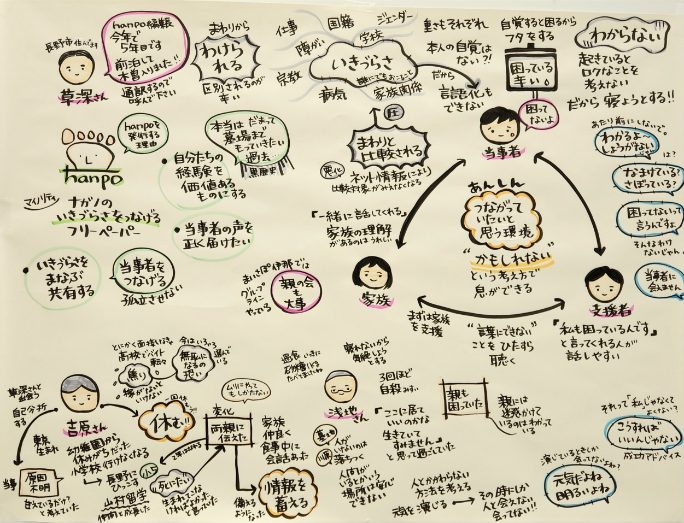 長野市住んでます
草深さん
hanpo編集長
今年で
5年目です
前泊して
本当入りました!!
通訳するので
呼んで下さい
まわりから
わけら
れる
区別されるのが
辛い
hanpoを
発行する
理由
hanpo
マイノリティ
ナガノの
いきづらさをつなげる
フリーペーパー
いきづらさを
まなぶ
共有する
当事者を
つなげる
孤立させない
本当は だまって
墓場まで
もっていきたい
過去
黒歴史
自分たちの
経験を
価値ある
ものにする
当事者の声を
正く届けたい
仕事
国籍
ジェンダー
障がい
学校
いきづらさ
誰にでもおこること
宗教
病気
家族関係
重さもそれぞれ
本人の自覚は
ない?!
だから
言語化も
できない
自覚すると困るから
フタをする
困っている
辛い
困って
ないよ
当事者
わからない
起きていると
ロクなことを
考えない
だから 寝ようとする!!
圧
まわりと
比較される
悪化
ネット情報により
比較対象がみえなくなる
「一緒に話をしてくれる」
家族の理解
があるのはうれしい
あんしん
つながって
いたいと
思う環境
“かもしれない”
という考え方で
息ができる
あたり前にしないで。
わかるよ~
しょうがない
は?
なまけている?
さぼっている?
困ってないって
言うんですよ
そんなわけ
ないじゃん
当事者に
会えません
まいさぽ伊那では
グループ
ライン
やっている
親の会
も
大事
家族
支援者
まずは家族
を支援
“言葉にできない”
ことをひたすら
聴く
「私も困っているんです」
と言ってくれる人が
話しやすい
草深さんと
出会う
自己分析
する
吉原さん
とにかく面接いる
高校でバイト
転々
焦り
稼がないと
いけない
今はいろいろ
選んでいる
無職に
なるのも
恐い
休む
東京
生まれ
幼稚園から
休みがちだった
小学校 行けなくなる
長野に
ひっこす
小5
山村留学
仲間と成長した
当時
原因
不明
甘えているだけ?
と考えていた
ムリにやって
もしかたない
変化
両親に
伝えた
家族
仲良く
食事中に
会話あった
死にたい
生まれてこな
ければよかった
と思った
備える
ようになった
情報を
蓄える
浅地さん
3回ほど
自殺みすい
「ここに居て
いいのかな
生きていて
すみません」
と思って過ごしていた
人が
いないのは
落ちつく
親も
困っていた
親には
迷惑かけて
いるのはわかっている
人とかかわらない
方法を考える
元気を演じる
その時にしか
人と会えない
会ってない!!
それって「私じゃなくて
よくない?
こうすれば
いいんじゃない
成功アドバイス
演じているときしか
会ってないよね?
元気だよね
明るいよね